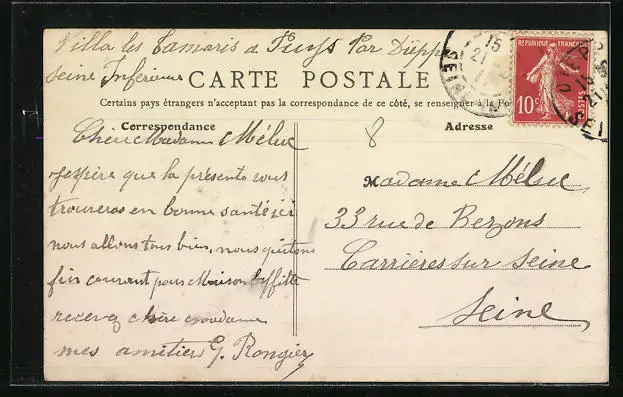 Villa les Tamaris à Puys Par Dieppe
Seine Inférieure
CARTE POSTALE
Certains pays étrangers n'acceptent pas la correspondance de ce côté, se renseigner à la Po
Correspondance
Adresse
8
Chère Madame Mélue
j'espère que la présente vous
trouveras en bonne santé ici
nous allons tous bien, nous quittons
fin courant pour Maison
recevez chère madame
mes amitiers G. Rongier
Madame Mélue,
33 rue de Bezons
Carrières sur Seine
Seine
REPUBLIQUE FRANÇAISE
10c
POSTES
15
21
DIEPPE
21
SEI